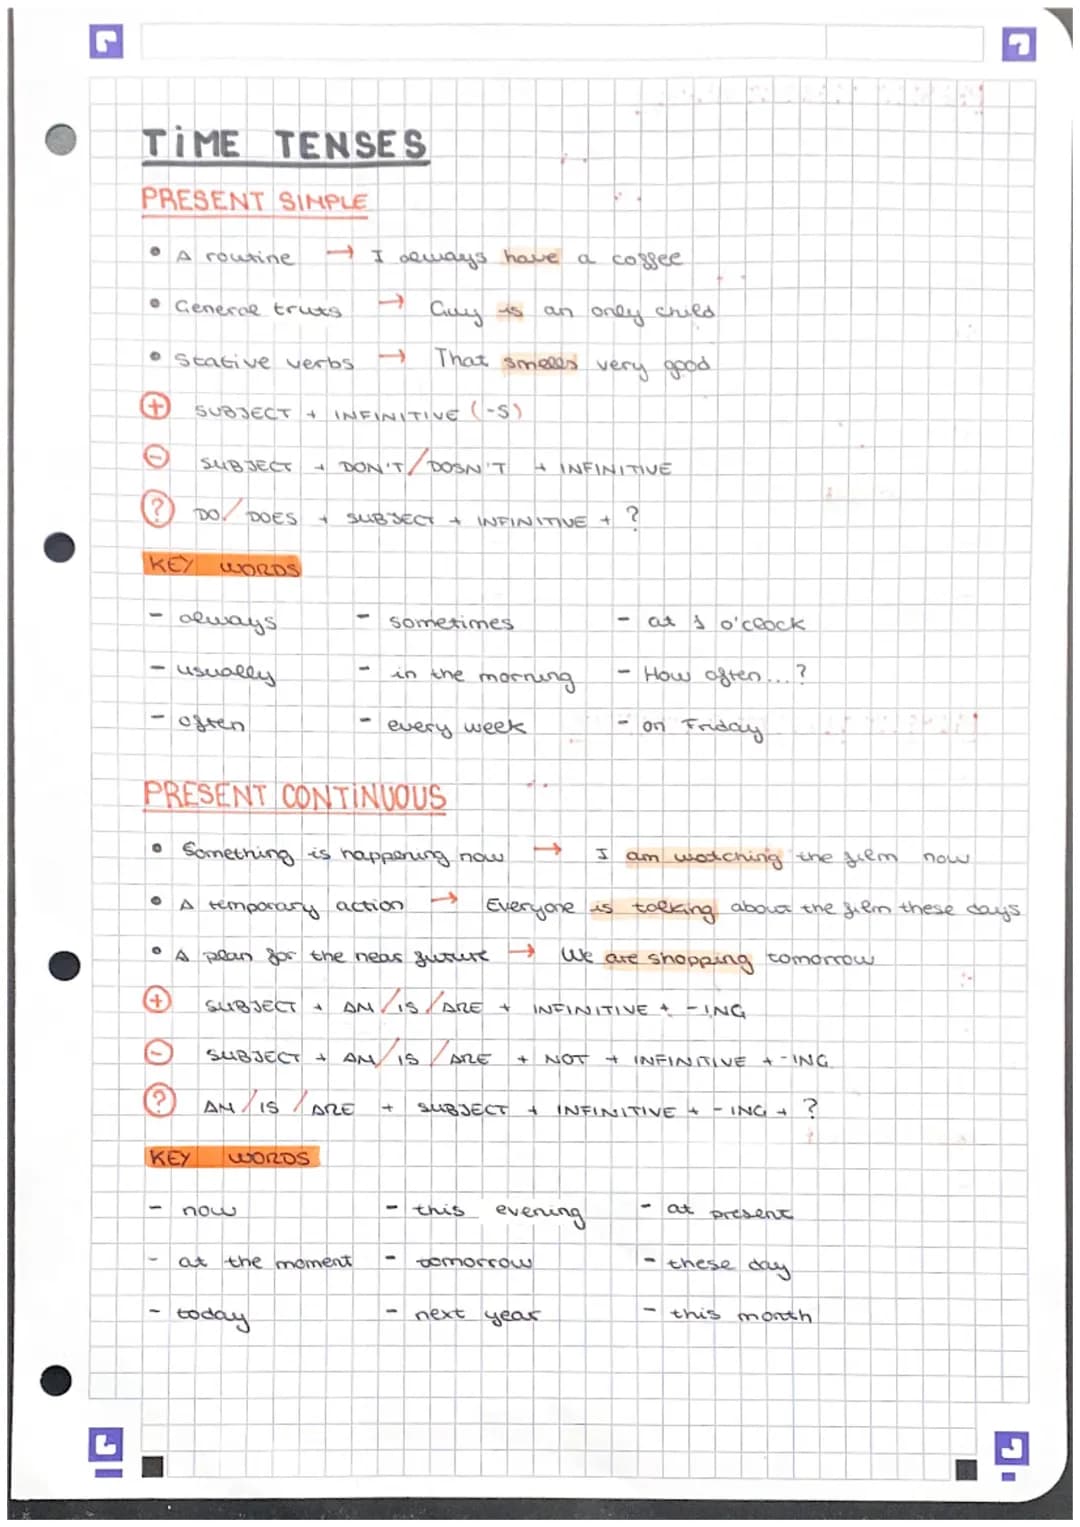 TiME TENSES
PRESENT SIMPLE
• A routine → I always have a coffee
• General truts → Guy is an only child
• Stative verbs → That smells very good
+ SUBJECT + INFINITIVE (-S)
- SUBJECT + DON'T/DOSN'T + INFINITIVE
? DO/DOES + SUBJECT + INFINITIVE + ?
KEY WORDS
- always - sometimes - at 1 o'clock
- usually - in the morning - How often...?
- often - every week - on Friday
PRESENT CONTiNUOUS
• Something is happening now → I am watching the film now
• A temporary action → Everyone is talking about the film these days
• A plan for the near future → We are shopping tomorrow
+ SUBJECT + AM/IS/ARE + INFINITIVE + -ING
- SUBJECT + AM/IS/ARE + NOT + INFINITIVE + -ING
? AM/IS/ARE + SUBJECT + INFINITIVE + -ING + ?
KEY WORDS
- now - this evening - at present
- at the moment - tomorrow - these day
- today - next year - this month